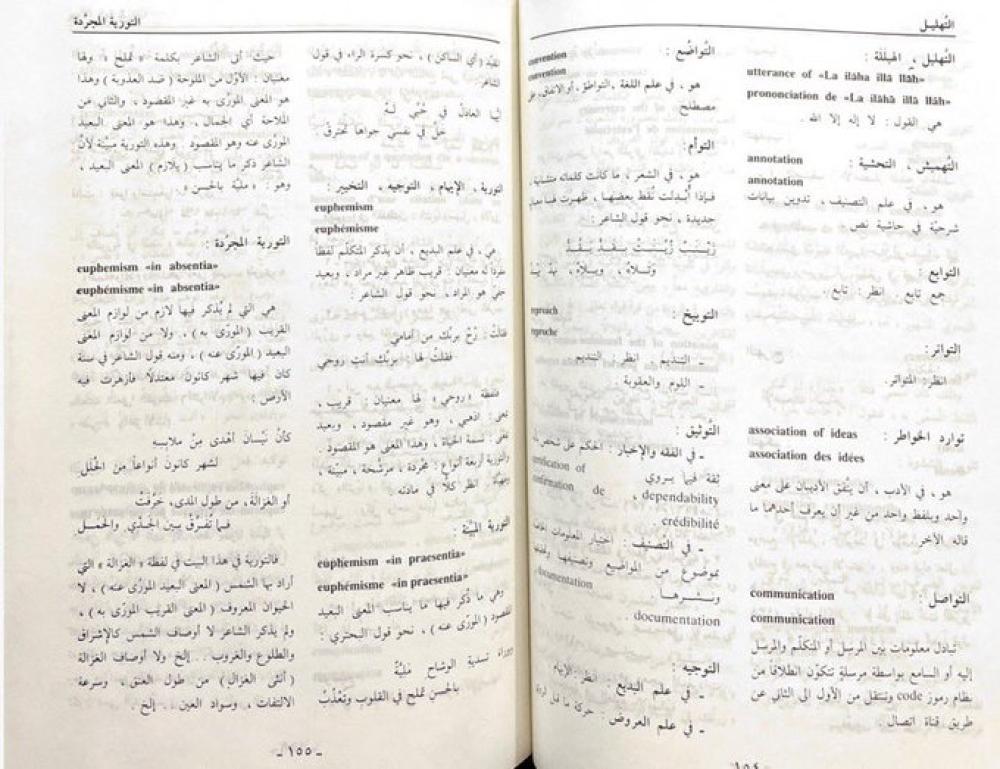 التهليل
التهليل ، الهيللة :
utterance of «La ilāha illā llāh»
prononciation de «La ilāhā illā llāh»
هي القول : لا إله إلا الله .
التهميش ، التحشية :
annotation
annotation
هو ، في علم التصنيف ، تدوين بيانات
شرحيّة في حاشية نص .
التوابع :
جمع تابع . انظر : تابع .
التواتر :
انظر : المتواتر .
توارد الخواطر :
association of ideas
association des idées
هو ، في الأدب ، أن يتّفق الأديبان على معنى
واحد وبلفظ واحد من غير أن يعرف أحدهما ما
قاله الآخر .
التواصل :
communication
communication
تبادل معلومات بين المرسل أو المتكلّم والمرسل
إليه أو السامع بواسطة مرسلة تتكوّن انطلاقاً من
نظام رموز code وتنتقل من الأول الى الثاني عن
طريق قناة اتصال .
التواضع :
convention
convention
هو ، في علم اللغة ، التواطؤ ، أو الاتفاق على
مصطلح
التوأم :
هو ، في الشعر ، ما كانت كلماته متشابهة ،
فإذا أُبدلت نُقط بعضها ، ظهرت
جديدة ، نحو قول الشاعر :
زَيْنَبُ زُيِّنَتْ بِقَدٍّ يَقُدُّ
وتلاهُ ، ويلاهُ ،
التوبيخ :
reproach
reproche
ـ التنديم . انظر : التنديم
ـ اللوم والعقوبة .
التوثيق :
ـ في الفقه والإخبار : الحكم على شخص
ثقة فيما يروي
confirmation de ، dependability
crédibilité
ـ في التصنيف : اختيار المعلومات
بموضوع من المواضيع وتصنيفها
ونشرها
documentation
documentation .
التوجيه :
ـ في علم البديع . انظر : الإيهام
ـ في علم العروض : حركة ما قبل
١٥٤
التورية المجرَّدة
المقيَّد (أي الساكن) ، نحو كسرة الراء في قول
الشاعر :
أيّها العاذل في حُبّي لهُ
خلِّ نفسي في جواها تحترقْ .
التورية ، الإيهام ، التوجيه ، التخيير :
euphemism
euphémisme
هي ، في علم البديع ، أن يذكر المتكلّم لفظاً
مفرداً له معنيان : قريب ظاهر غير مراد ، وبعيد
خفيّ هو المراد ، نحو قول الشاعر :
قالتْ : رُحْ بربّك من أمامي
فقلتُ لها : بربّكِ أنتِ روحي
فلفظة « روحي » لها معنيان : قريب ،
بمعنى : اذهبي ، وهو غير مقصود ، وبعيد
بمعنى : نسمة الحياة ، وهذا المعنى هو المقصود .
والتورية أربعة أنواع : مجرّدة ، مرشّحة ، مبيّنة ،
ومهيّأة . انظر كلّاً في مادته .
التورية المبيَّنة :
euphemism «in praesentia»
euphémisme «in praesentia»
وهي ما ذُكر فيها ما يناسب المعنى البعيد
المقصود (المورّى عنه) ، نحو قول البحتري :
ووراء تسدية الوشاح مَليَّةٌ
بالحُسنِ تملح في القلوب وتَعذُبُ
حيث أتى الشاعر بكلمة « تملح » ولها
معنيان : الأوّل من الملوحة (ضد العذوبة) وهذا
هو المعنى المورّى به غير المقصود ، والثاني من
الملاحة أي الجمال ، وهذا هو المعنى البعيد
المورّى عنه وهو المقصود . وهذه التورية مبيّنة لأنّ
الشاعر ذكر ما يناسب (يلازم) المعنى البعيد ،
وهو : « مليّة بالحسن » .
التورية المجرَّدة :
euphemism «in absentia»
euphémisme «in absentia»
هي التي لم يُذكر فيها لازم من لوازم المعنى
القريب (المورّى به) ، ولا من لوازم المعنى
البعيد (المورّى عنه) ، ومنه قول الشاعر في سنة
كان فيها شهر كانون معتدلاً فأزهرت فيه
الأرض :
كأنّ نَيْسانَ أهدى مِنْ ملابِسِهِ
لشهر كانون أنواعاً من الحُللِ
أو الغزالةَ ، من طول المدى ، خَرِفَتْ
فما تُفرِّقُ بين الجدْي والحَمَلِ
فالتورية في هذا البيت في لفظة « الغزالة » التي
أراد بها الشمس (المعنى البعيد المورّى عنه) ، لا
الحيوان المعروف (المعنى القريب المورّى به) ،
ولم يذكر الشاعر لا أوصاف الشمس كالإشراق
والطلوع والغروب ... إلخ ولا أوصاف الغزالة
(أنثى الغزال) من طول العنق ، وسرعة
الالتفات ، وسواد العين ... إلخ
ـ ١٥٥ ـ